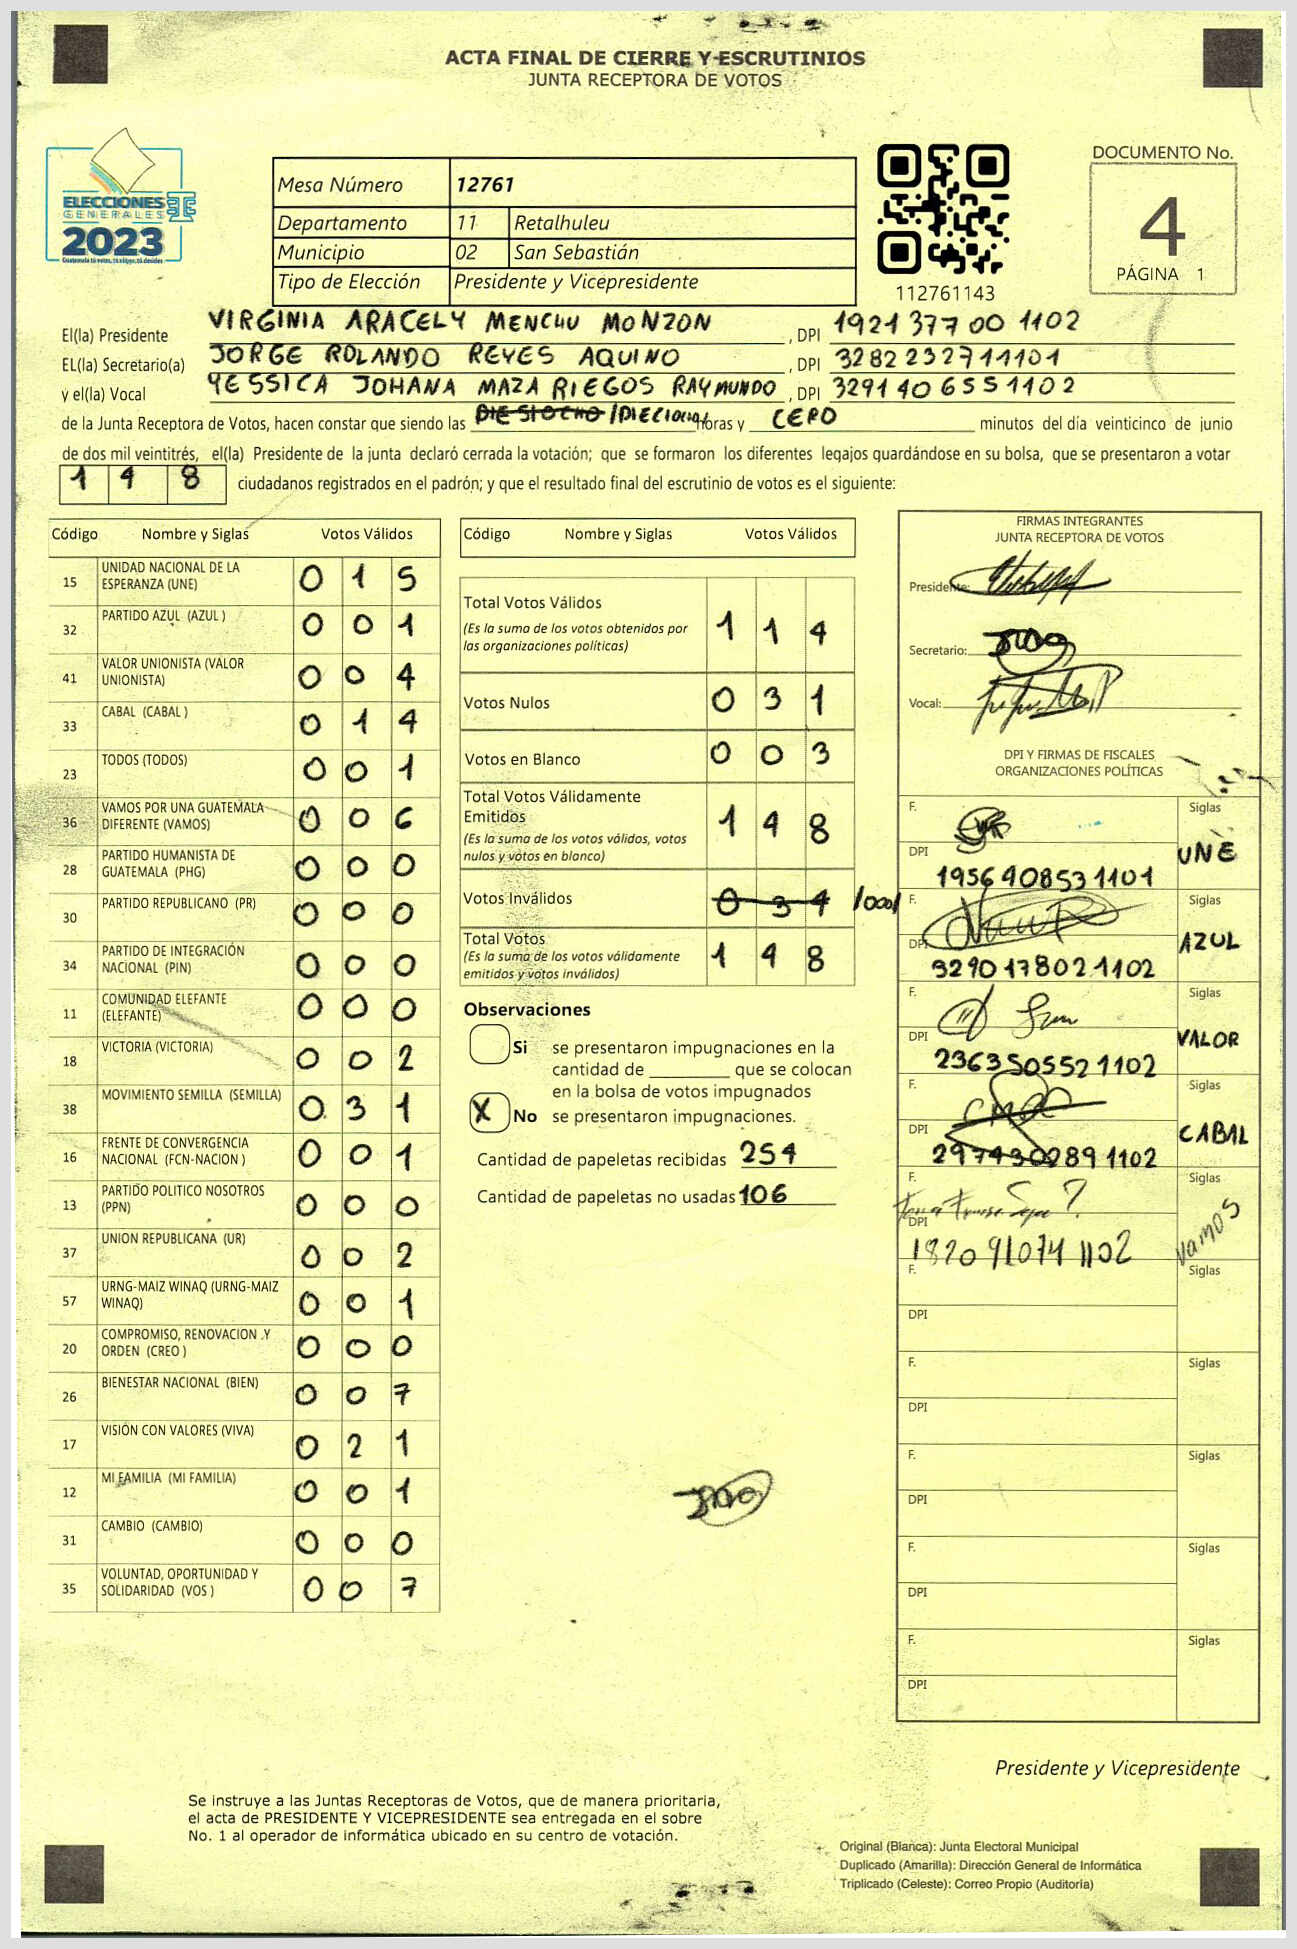 ACTA FINAL DE CIERRE Y ESCRUTINIOS
JUNTA RECEPTORA DE VOTOS
ELECCIONES
GENERALES
2023
Guatemala tú votas, tú eliges, tú decides
Mesa Número 12761
Departamento 11 Retalhuleu
Municipio 02 San Sebastián
Tipo de Elección Presidente y Vicepresidente
112761143
DOCUMENTO No.
4
PÁGINA 1
El(la) Presidente VIRGINIA ARACELY MENCHU MONZON , DPI 1921 377 00 1102
EL(la) Secretario(a) JORGE ROLANDO REYES AQUINO , DPI 3282 232711101
y el(la) Vocal YESSICA JOHANA MAZARIEGOS RAYMUNDO , DPI 3291 40 655 1102
de la Junta Receptora de Votos, hacen constar que siendo las DIESIOCHO /DIECIOCHO horas y CERO minutos del día veinticinco de junio
de dos mil veintitrés, el(la) Presidente de la junta declaró cerrada la votación; que se formaron los diferentes legajos guardándose en su bolsa, que se presentaron a votar
1 4 8 ciudadanos registrados en el padrón; y que el resultado final del escrutinio de votos es el siguiente:
Código Nombre y Siglas Votos Válidos
15 UNIDAD NACIONAL DE LA ESPERANZA (UNE) 0 1 5
32 PARTIDO AZUL (AZUL ) 0 0 1
41 VALOR UNIONISTA (VALOR UNIONISTA) 0 0 4
33 CABAL (CABAL ) 0 1 4
23 TODOS (TODOS) 0 0 1
36 VAMOS POR UNA GUATEMALA DIFERENTE (VAMOS) 0 0 6
28 PARTIDO HUMANISTA DE GUATEMALA (PHG) 0 0 0
30 PARTIDO REPUBLICANO (PR) 0 0 0
34 PARTIDO DE INTEGRACIÓN NACIONAL (PIN) 0 0 0
11 COMUNIDAD ELEFANTE (ELEFANTE) 0 0 0
18 VICTORIA (VICTORIA) 0 0 2
38 MOVIMIENTO SEMILLA (SEMILLA) 0 3 1
16 FRENTE DE CONVERGENCIA NACIONAL (FCN-NACION ) 0 0 1
13 PARTIDO POLITICO NOSOTROS (PPN) 0 0 0
37 UNION REPUBLICANA (UR) 0 0 2
57 URNG-MAIZ WINAQ (URNG-MAIZ WINAQ) 0 0 1
20 COMPROMISO, RENOVACION Y ORDEN (CREO ) 0 0 0
26 BIENESTAR NACIONAL (BIEN) 0 0 7
17 VISIÓN CON VALORES (VIVA) 0 2 1
12 MI FAMILIA (MI FAMILIA) 0 0 1
31 CAMBIO (CAMBIO) 0 0 0
35 VOLUNTAD, OPORTUNIDAD Y SOLIDARIDAD (VOS ) 0 0 7
Código Nombre y Siglas Votos Válidos
Total Votos Válidos 1 1 4
(Es la suma de los votos obtenidos por
las organizaciones políticas)
Votos Nulos 0 3 1
Votos en Blanco 0 0 3
Total Votos Válidamente
Emitidos 1 4 8
(Es la suma de los votos válidos, votos
nulos y votos en blanco)
Votos Inválidos 0 3 4 /000/
Total Votos 1 4 8
(Es la suma de los votos válidamente
emitidos y votos inválidos)
Observaciones
Si se presentaron impugnaciones en la
cantidad de ________ que se colocan
en la bolsa de votos impugnados
X No se presentaron impugnaciones.
Cantidad de papeletas recibidas 254
Cantidad de papeletas no usadas 106
FIRMAS INTEGRANTES
JUNTA RECEPTORA DE VOTOS
Presidente:
Secretario:
Vocal:
DPI Y FIRMAS DE FISCALES
ORGANIZACIONES POLÍTICAS
F. Siglas
UNE
DPI 1956408531101
F. Siglas
AZUL
DPI 3290178021102
F. Siglas
VALOR
DPI 2363505521102
F. Siglas
CABAL
DPI 2974302891102
F. Siglas
VAMOS
DPI 1820910741102
F. Siglas
DPI
F. Siglas
DPI
F. Siglas
DPI
F. Siglas
DPI
F. Siglas
DPI
Presidente y Vicepresidente
Se instruye a las Juntas Receptoras de Votos, que de manera prioritaria,
el acta de PRESIDENTE Y VICEPRESIDENTE sea entregada en el sobre
No. 1 al operador de informática ubicado en su centro de votación.
Original (Blanca): Junta Electoral Municipal
Duplicado (Amarilla): Dirección General de Informática
Triplicado (Celeste): Correo Propio (Auditoría)